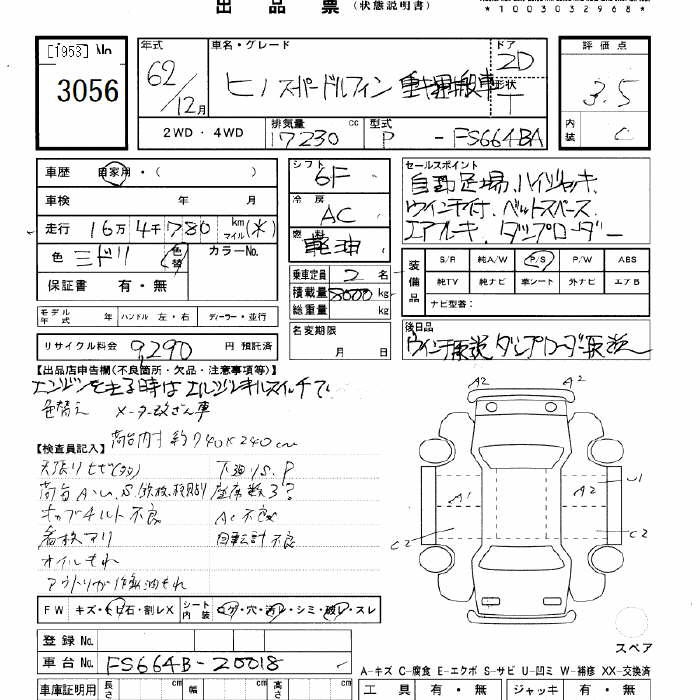 出品票（状態説明書）
*1003032968*
[1953] No
3056
年式
62/12月
車名・グレード
ヒノ スーパードルフィン 重機運搬車
ドア
2D
形状
T
評価点
3.5
内装
C
2WD・4WD
排気量 cc
17230
型式
P - FS664BA
車歴 自家用・( )
車検 年 月
走行 16万 4千 780 km マイル (*)
色 ミドリ 色替 カラーNo.
保証書 有・無
モデル年式 年 ハンドル 左・右 ディーラー・並行
リサイクル料金 9,290 円 預託済
シフト
6F
冷房
AC
燃料
軽油
乗車定員 2 名
積載量 8000 kg
総重量 kg
名変期限
月 日
セールスポイント
自動足場、ハイジャッキ、
ウインチ付、ベットスペース、
エアルーキ、ダンプローダー
装備品
S/R 純A/W P/S P/W ABS
純TV 純ナビ 車シート 外ナビ エアB
ナビ型番:
後日品
ウインチ取説 ダンプローダー取説
【出品店申告欄(不良箇所・欠品・注意事項等)】
エンジンを止る時はエンジンキルスイッチで
色替え メーター改ざん車
荷台内寸 約740×240cm
【検査員記入】
天張りヒビ(タタ)
下廻りS.P
座席数3?
キャブチルト不良
AC不良
看板アリ
回転計不良
オイルもれ
アウトリガ作動油もれ
FW キズ・ヒビ石・割レX シート内装 コゲ・穴・汚レ・シミ・破レ・スレ
登録 No.
車台 No. FS664B-20018
車庫証明用 長さ cm 幅 cm 高さ cm
A2 A2
A1 A2 U1
C2 C2
スペア
A-キズ C-腐食 E-エクボ S-サビ U-凹ミ W-補修 XX-交換済
工具 有・無 ジャッキ 有・無